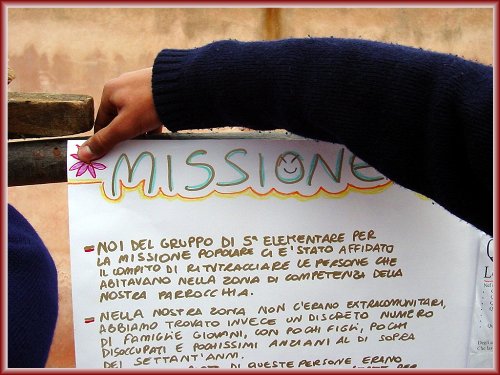 MISSIONE
- NOI DEL GRUPPO DI 5ª ELEMENTARE PER
LA MISSIONE POPOLARE CI E' STATO AFFIDATO
IL COMPITO DI RINTRACCIARE LE PERSONE CHE
ABITAVANO NELLA ZONA DI COMPETENZA DELLA
NOSTRA PARROCCHIA.
- NELLA NOSTRA ZONA NON C'ERANO EXTRACOMUNITARI,
ABBIAMO TROVATO INVECE UN DISCRETO NUMERO
DI FAMIGLIE GIOVANI, CON POCHI FIGLI, POCHI
DISOCCUPATI E POCHISSIMI ANZIANI AL DI SOPRA
DEI SETTANT'ANNI.
DI QUESTE PERSONE ERANO